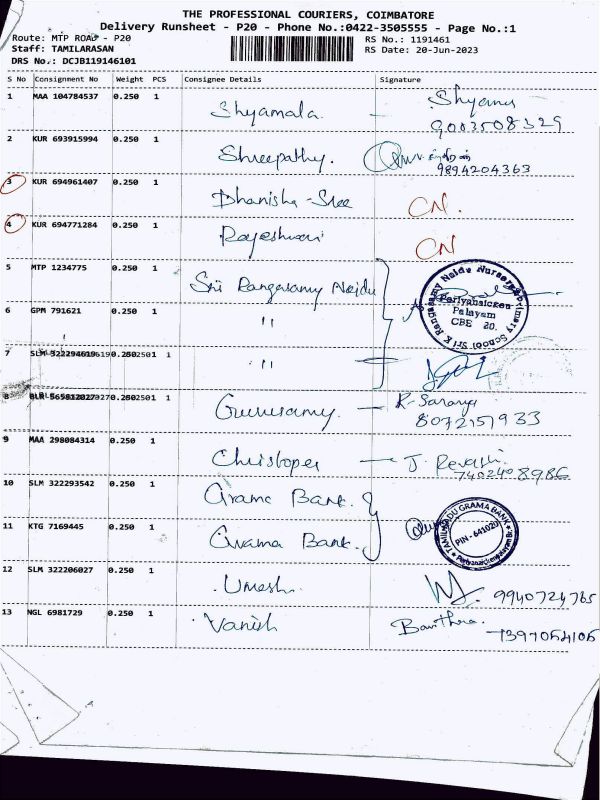 THE PROFESSIONAL COURIERS, COIMBATORE
Delivery Runsheet - P20 - Phone No.:0422-3505555 - Page No.:1
Route: MTP ROAD - P20
RS No.: 1191461
Staff: TAMILARASAN
RS Date: 20-Jun-2023
DRS No.: DCJB119146101
S No Consignment No Weight PCS Consignee Details Signature
1 MAA 104784537 0.250 1 Shyamala. - Shyama
9003508329
2 KUR 693915994 0.250 1 Shreepathy.
9894204363
3 KUR 694961407 0.250 1 Dhanisha-Sree CN.
4 KUR 694771284 0.250 1 Rajeshwari CN
5 MTP 1234775 0.250 1 Sri Rangasamy Naidu
Periyanaicken
Palayam
CBE 20.
6 GPM 791621 0.250 1 "
7 SLM 1 "
8 1 Gurusamy. - R-Saranya
8072157933
9 MAA 298084314 0.250 1 Christoper - J. Revathi
7402408986
10 SLM 322293542 0.250 1 Grama Bank.
11 KTG 7169445 0.250 1 Grama Bank.
TAMIL NADU GRAMA BANK
PIN - 641020
12 SLM 322206027 0.250 1 Umesh. 9940724765
13 NGL 6981729 0.250 1 Vanish Bavithra.